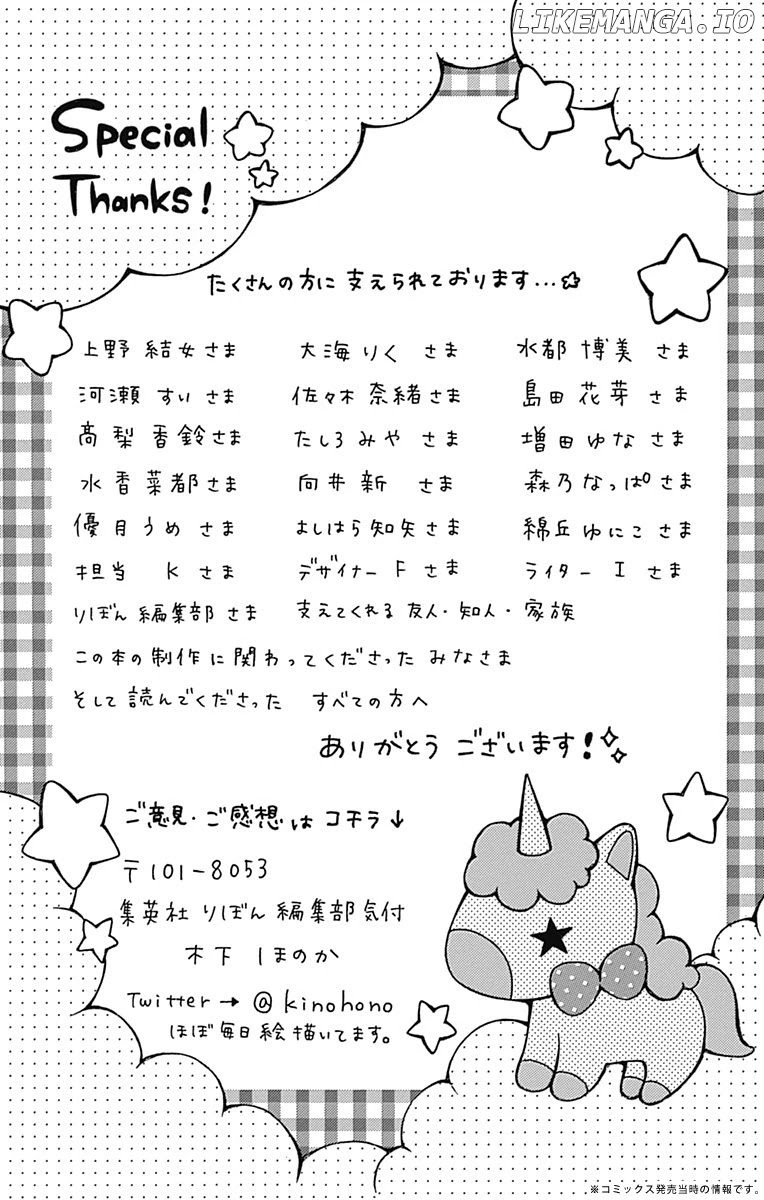 LIKEMANGA.IO
Special
Thanks!
たくさんの方に 支えられております...☆
上野 結女さま 大海りく さま 水都 博美 さま
河瀬 すい さま 佐々木 奈緒さま 島田 花芽 さま
高梨 香鈴さま たしろ みや さま 増田 ゆな さま
水香菜都さま 向井 新 さま 森乃 なっぱさま
優月うめ さま よしはら知矢さま 綿丘 ゆにこ さま
担当 K さま デザイナー F さま ライター I さま
りぼん 編集部 さま 支えてくれる 友人・知人・家族
この本の制作に関わってくださった みなさま
そして 読んでくださった すべての方へ
ありがとう ございます!
ご意見・ご感想は コチラ↓
〒101-8053
集英社 りぼん 編集部気付
木下 ほのか
Twitter→ @kinohono
ほぼ毎日絵描いてます。
※コミックス発売当時の情報です。